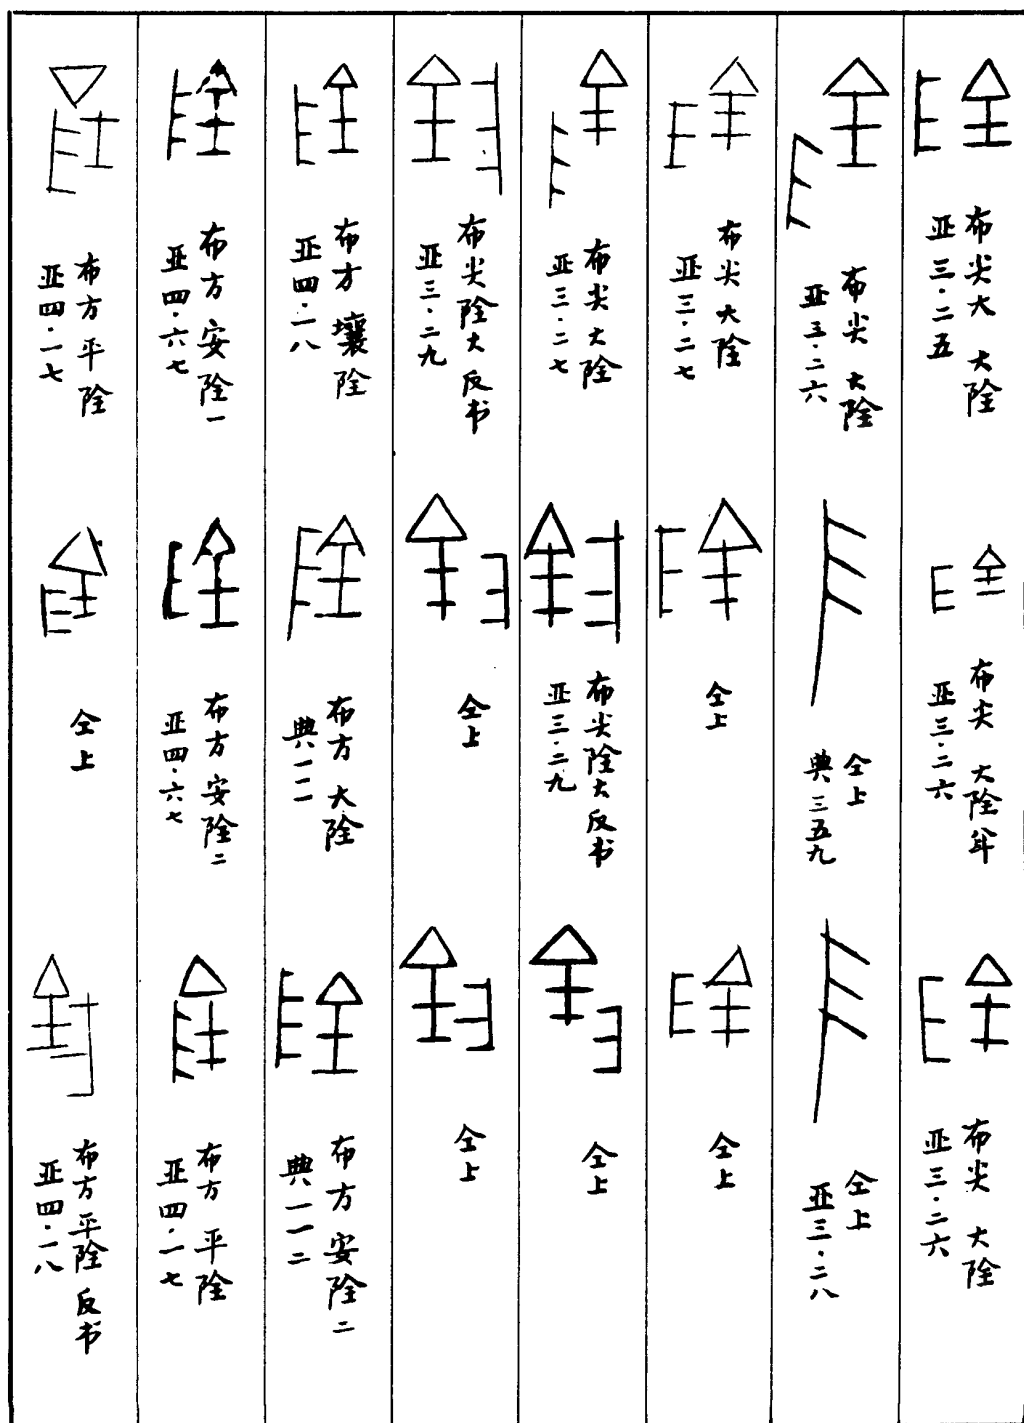 布尖大 大陰
亚三·二五
布尖 大陰半
亚三·二六
布尖 大陰
亚三·二六
布尖 大陰
亚三·二六
仝上
典三五九
仝上
亚三·二八
布尖 大陰
亚三·二七
仝上
仝上
布尖 大陰
亚三·二七
布尖陰大 反书
亚三·二九
仝上
布尖陰大 反书
亚三·二九
仝上
仝上
布方 壤陰
亚四·一八
布方 大陰
典一一一
布方 安陰二
典一一二
布方 安陰一
亚四·六七
布方 安陰二
亚四·六七
布方 平陰
亚四·一七
布方 平陰
亚四·一七
仝上
布方平陰 反书
亚四·一八